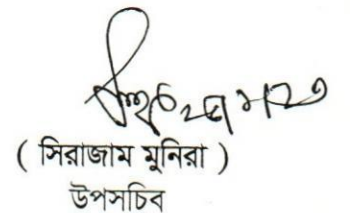 ( সিরাজাম মুনিরা )
উপসচিব